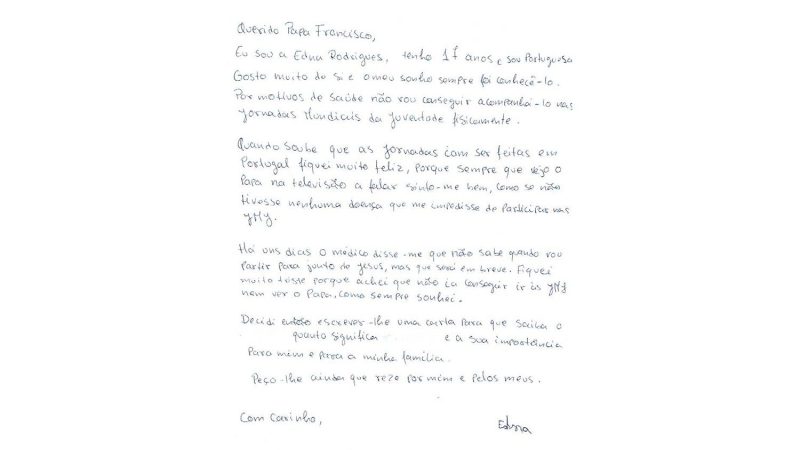 Querido Papa Francisco,
Eu sou a Edna Rodrigues, tenho 17 anos e sou Portuguesa
Gosto muito de si e o meu sonho sempre foi conhecê-lo.
Por motivos de saúde não vou conseguir acompanhá-lo nas
Jornadas Mundiais da Juventude fisicamente.
Quando soube que as Jornadas iam ser feitas em
Portugal fiquei muito feliz, porque sempre que vejo o
Papa na televisão a falar sinto-me bem, como se não
tivesse nenhuma doença que me impedisse de participar nas
JMJ.
Há uns dias o médico disse-me que não sabe quando vou
partir para junto de Jesus, mas que será em breve. Fiquei
muito triste porque achei que não ia conseguir ir às JMJ
nem ver o Papa, como sempre sonhei.
Decidi então escrever-lhe uma carta para que saiba o
quanto significa e a sua importância
Para mim e para a minha família.
Peço-lhe ainda que reze por mim e pelos meus.
Com carinho,
Edna